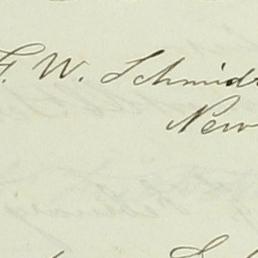 F. W. Schmidt
New